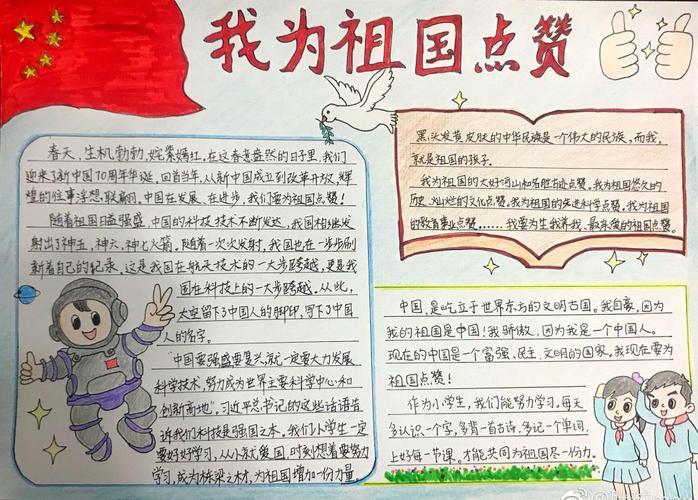 我为祖国点赞
春天,生机勃勃,姹紫嫣红,在这春意盎然的日子里,我们
迎来了新中国70周年华诞,回首当年,从新中国成立到改革开放,辉
煌的往事浮想联翩,中国在发展、在进步,我们要为祖国点赞!
随着祖国日益强盛,中国的科技技术不断发达,我国相继发
射出了神五、神六、神七火箭。随着一次次发射,我国也在一步步刷
新着自己的纪录,这是我国在航天技术的一大步跨越,更是我
国在科技上的一大步跨越。从此,
太空留下了中国人的脚印,写下了中国
人的名字。
“中国要强盛要复兴,就一定要大力发展
科学技术,努力成为世界主要科学中心和
创新高地”。习近平总书记的这些话语告
诉我们科技是强国之本。我们小学生一定
要好好学习,从小就爱国,时刻想着要努力
学习,成为栋梁之材,为祖国增加一份力量
黑头发黄皮肤的中华民族是一个伟大的民族,而我,
就是祖国的孩子。
我为祖国的大好河山和名胜古迹点赞。我为祖国悠久的
历史、灿烂的文化点赞。我为祖国的先进科学点赞。我为祖国
的教育事业点赞……我要为生我养我、最亲爱的祖国点赞。
中国,是屹立于世界东方的文明古国。我自豪,因为
我的祖国是中国!我骄傲,因为我是一个中国人。
现在的中国是一个富强、民主、文明的国家。我现在要为
祖国点赞!
作为小学生,我们能努力学习。每天
多认识一个字,多背一首古诗,多记一个单词,
上好每一节课,才能共同为祖国尽一份力。